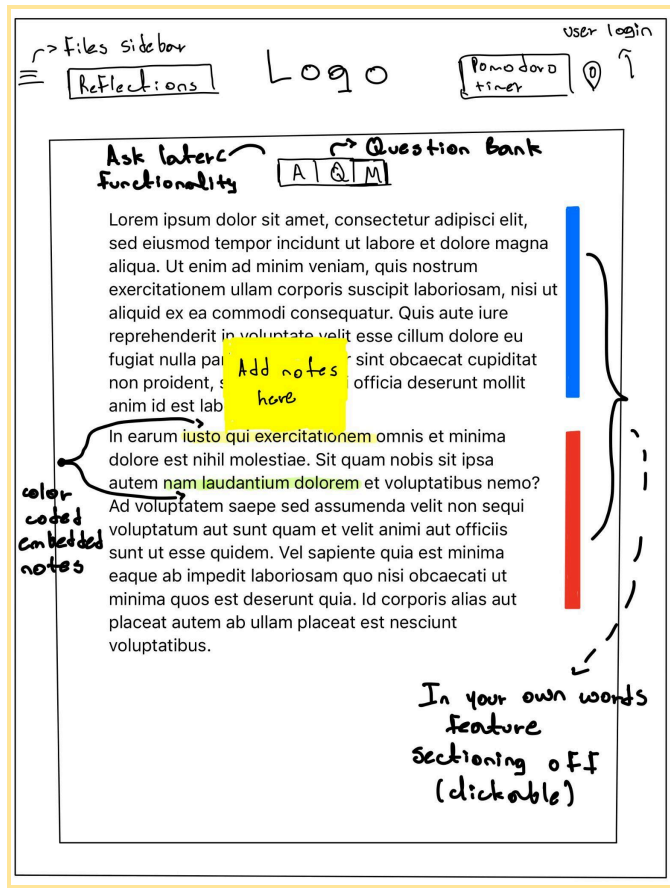 user login
Files sidebar
Reflections
Logo
Pomodoro
timer
Ask later
functionality
Question Bank
A Q M
Lorem ipsum dolor sit amet, consectetur adipisci elit,
sed eiusmod tempor incidunt ut labore et dolore magna
aliqua. Ut enim ad minim veniam, quis nostrum
exercitationem ullam corporis suscipit laboriosam, nisi ut
aliquid ex ea commodi consequatur. Quis aute iure
reprehenderit in voluptate velit esse cillum dolore eu
fugiat nulla sint obcaecat cupiditat
non proident, officia deserunt mollit
anim id est
Add notes
here
In earum iusto qui exercitationem omnis et minima
dolore est nihil molestiae. Sit quam nobis sit ipsa
autem nam laudantium dolorem et voluptatibus nemo?
Ad voluptatem saepe sed assumenda velit non sequi
voluptatum aut sunt quam et velit animi aut officiis
sunt ut esse quidem. Vel sapiente quia est minima
eaque ab impedit laboriosam quo nisi obcaecati ut
minima quos est deserunt quia. Id corporis alias aut
placeat autem ab ullam placeat est nesciunt
voluptatibus.
color
coded
embedded
notes
In your own words
feature
sectioning off
(clickable)